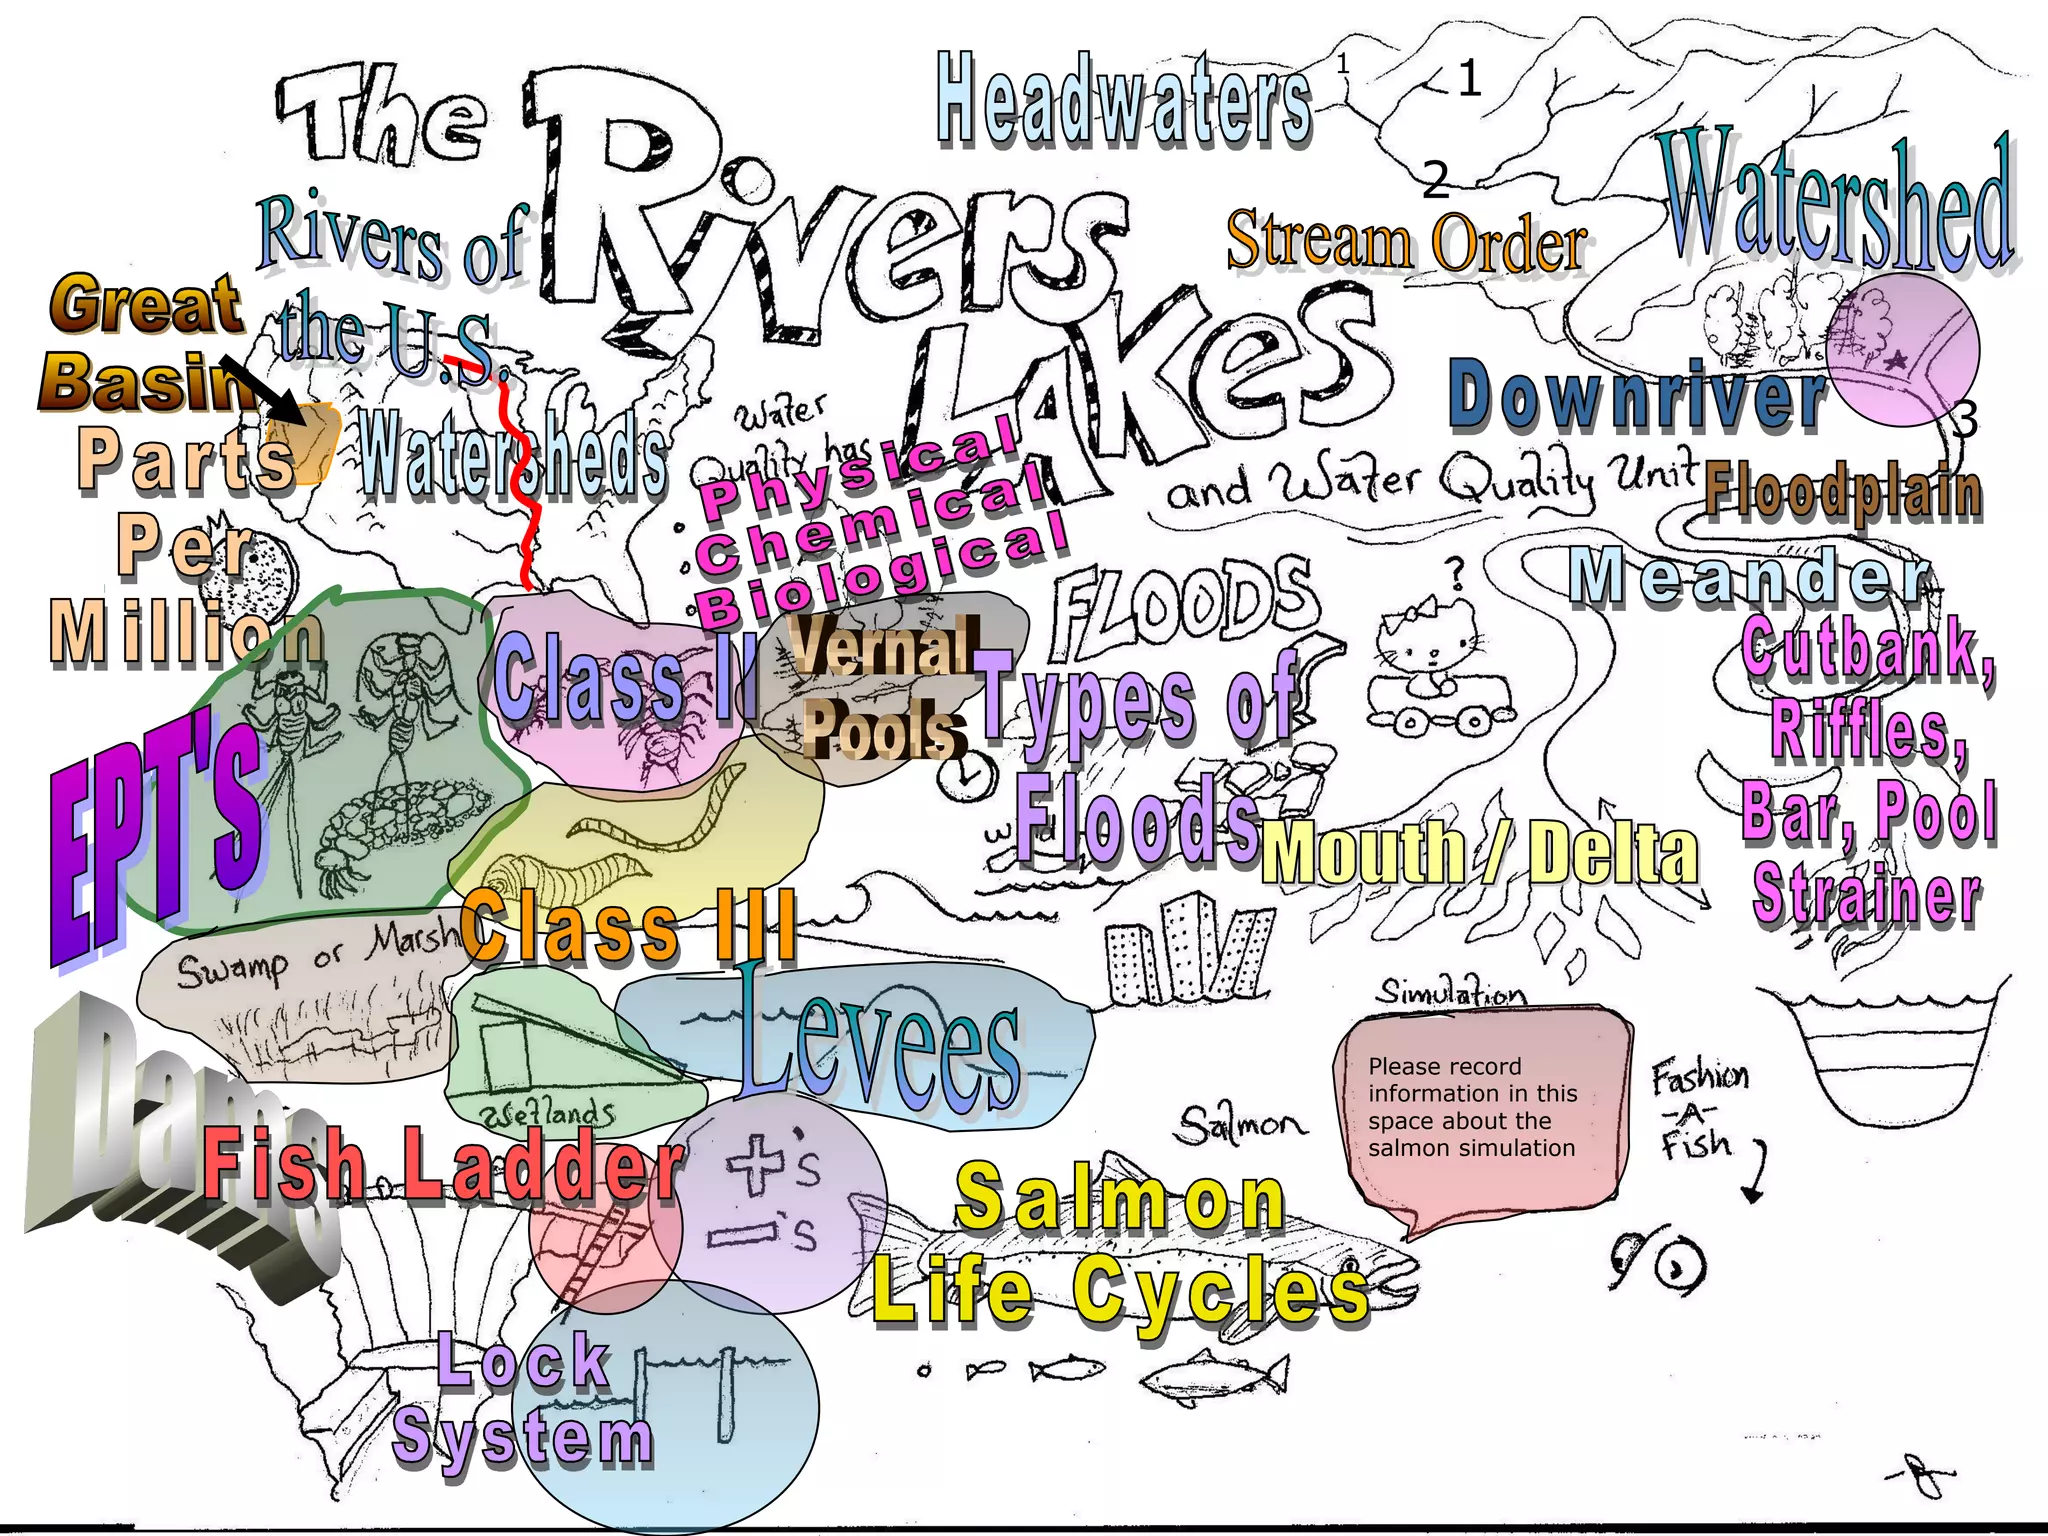 The
Rivers
Lakes
and Water Quality Unit
Headwaters
1
1
2
Watershed
Stream Order
Rivers of
the U.S.
Great
Basin
Watersheds
Water
Quality has
Physical
Chemical
Biological
Downriver
3
Floodplain
Parts
Per
Million
FLOODS
?
Meander
Cutbank,
Riffles,
Bar, Pool
Strainer
Class II
Vernal
Pools
Types of
Floods
EPT's
Mouth / Delta
Class III
Swamp or Marsh
Levees
Simulation
Please record
information in this
space about the
salmon simulation
Fashion
-A-
Fish
Dams
Wetlands
Salmon
Fish Ladder
+'s
-'s
Salmon
Life Cycles
Lock
System